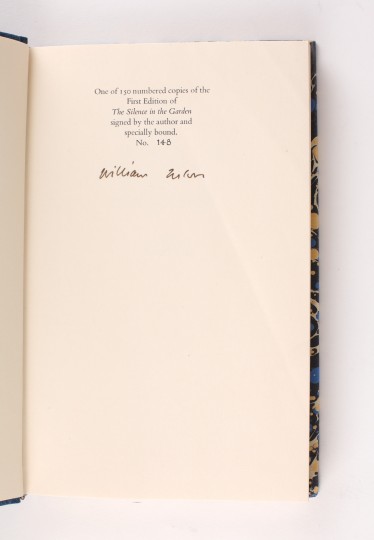 One of 150 numbered copies of the
First Edition of
The Silence in the Garden
signed by the author and
specially bound.
No. 148
William Trevor